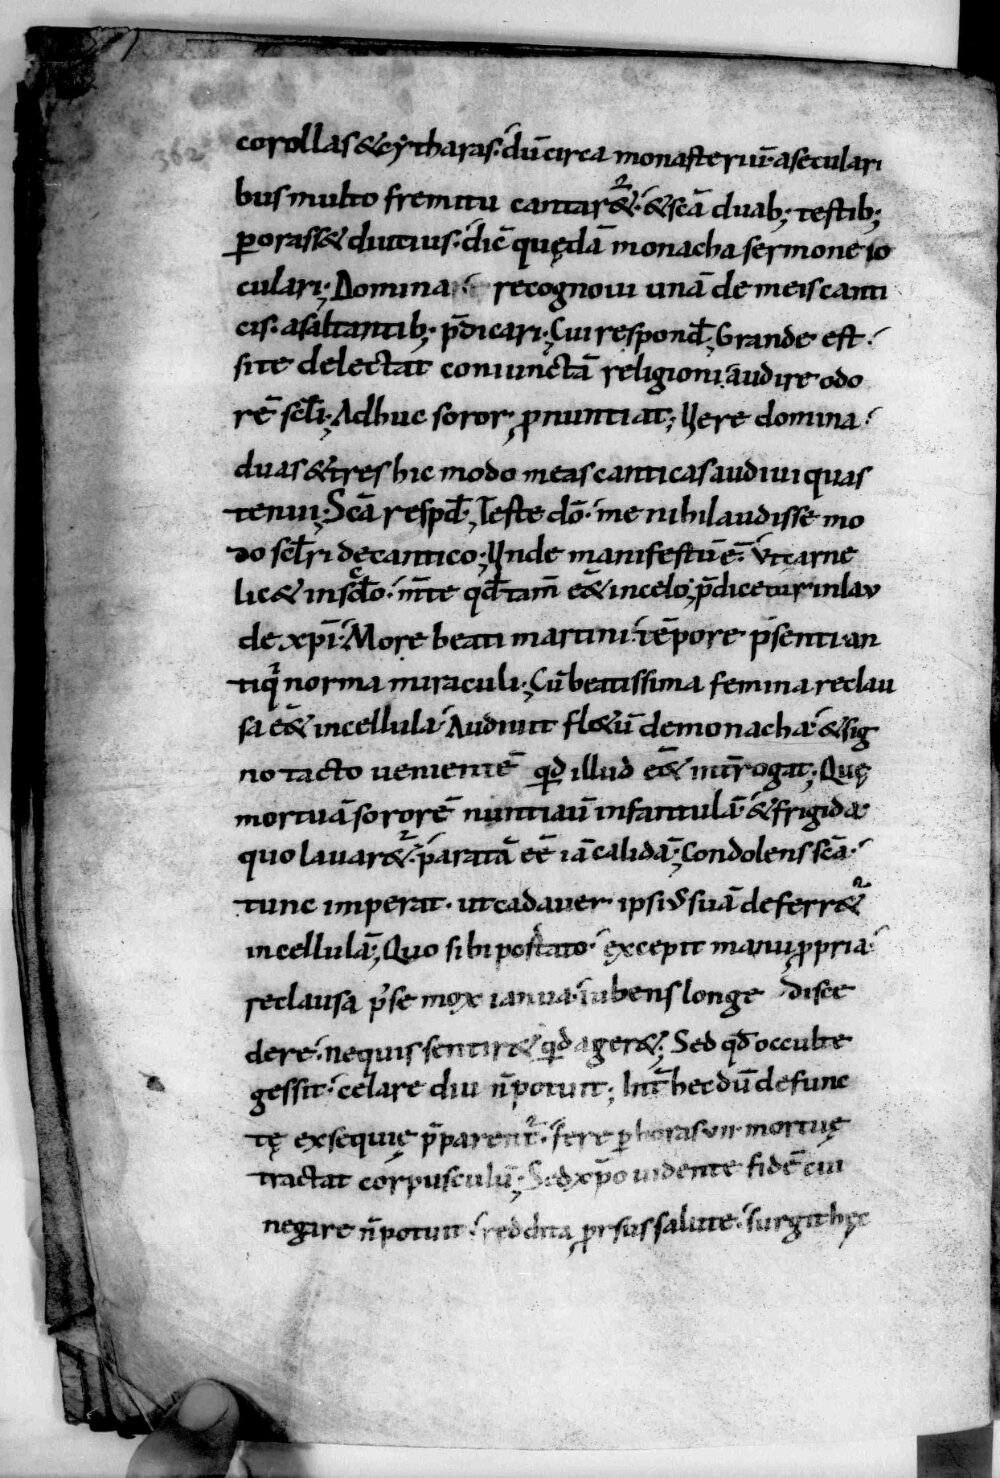 362
corollas & cytharas· dū circa monasteriū· a seculari
bus multo fremitu cantar&ur· & scā duab; testib;
ꝑorass& diutius· dic̄ quędā monacha sermone io
culari; Domina recognoui unā de meis canti
cis· a saltantib; p̄dicari; Cui respond̄; Grande est·
si te delectat coniunctā religioni audire odo
rē scl̄i; Adhuc soror ꝓnuntiat; Uere domina·
duas & tres hic modo meas canticas audiui quas
tenui; Scā respd̄; Teste dō· me nihil audisse mo
do scl̄ri de cantico; Unde manifestū ē· ut carne
lic& in scl̄o· m̄te qd̄ tam̄ ēt& in celo; p̄dicetur in lau
de xp̄i· More beati martini· tēpore p̄senti· an
tiq norma miraculi; Cū beatissima femina reclau
sa ēt& in cellula· Audiuit fl&ū de monacha· & sig
no tacto uenientē qd illud ēt& int̄rogat; Quę
mortuā sororē nuntiauit infantulā· & frigida·
quo lauar&ur· paratā eē iā calidā; Condolens scā·
tunc imperat· ut cadauer ipsius suā deferr&ur
in cellulā; Quo sibi postato· excepit manu ꝓpria·
reclusa p̄ se mox ianua· iubens longe disce
dere· ne quis sentir& qd ager&; Sed qd̄ occulte
gessit· celare diu n̄ potuit; Int̄ hec dū defunc
tę exsequię p̄parent̄· Fere ꝑ horas vii· mortuę
tractat corpusculū; Sed xp̄o uidente fidē cui
negare n̄ potuit· reddita ꝓrsus salute· surgit hęc